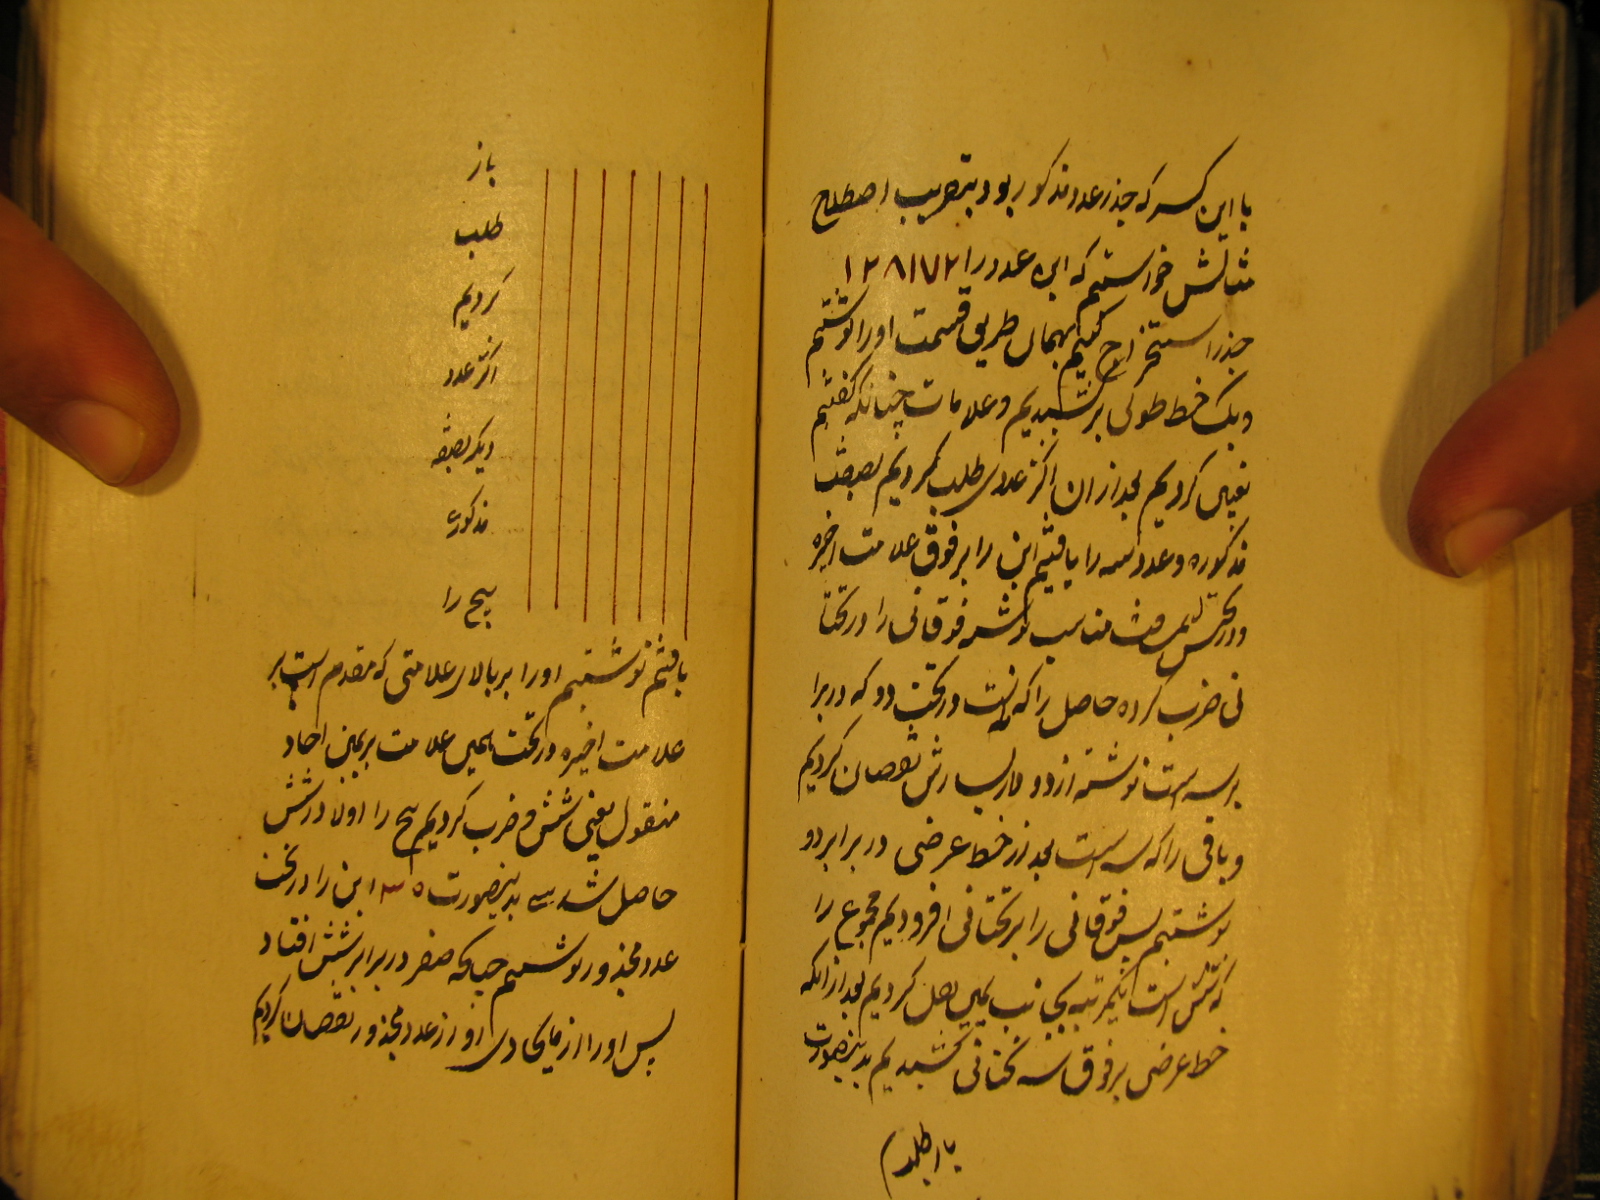 با این کسر که جذر عدد مذکور بود بتقریب اصطلاح
مثالش خواستیم که این عدد را ۱۲۸۱۷۲
جذر استخراج کنیم بهمان طریق قسمت او را نوشتیم
و یک خط طولی بر کشیدیم و علامات چنانکه گفتیم
تعیین کردیم بعد ازان اکثر عددی طلب کردیم بصفت
مذکوره و عدد سه را یافتیم این را بر فوق علامت اخیره
و در تحتش بمسافت مناسب نوشته فوقانی را در تحتا
نی ضرب کرده حاصل را که نه است در تحت دو که در برا
بر سه است نوشته از دو و از یسارش نقصان کردیم
و باقی را که سه است بعد از خط عرضی در برابر دو
نوشتیم پس فوقانی را بر تحتانی افزودیم مجموع را
که شش است یکمرتبه بجانب یمین نقل کردیم بعد ازانکه
خط عرضی بر فوق سه تحتانی کشیدیم بدینصورت
باز طلب کردیم
باز
طلب
کردیم
اکثر عدد
دیگر بصفة
مذکوره
پنج را
یافتیم نوشتیم او را بر بالای علامتی که مقدم است بر
علامت اخیره و در تحت همین علامت بر یمین احاد
منقول یعنی شش و ضرب کردیم پنج را اولا در شش
حاصل شد سی بدینصورت ۳۰ این را در تحت
عدد مجذور نوشتیم چنانکه صفر در برابر شش افتاد
پس او را از مایحاذی او از عدد مجذور نقصان کردیم